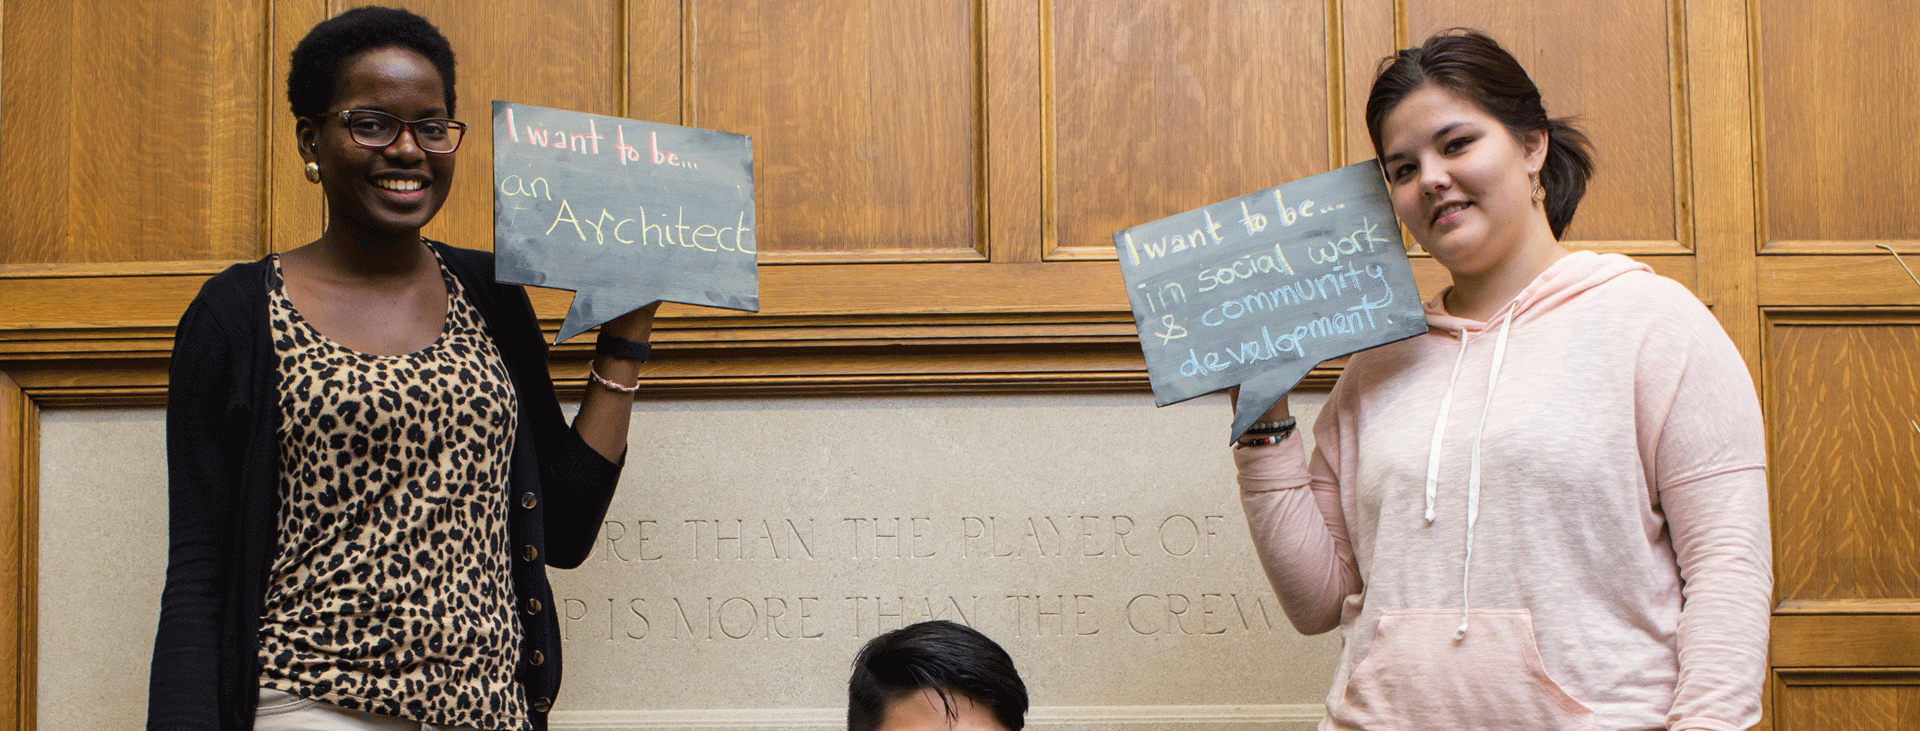 I want to be...
an
Architect
I want to be...
in social work
& community
development.
THAN THE PLAYER OF
IS MORE THAN THE CREW